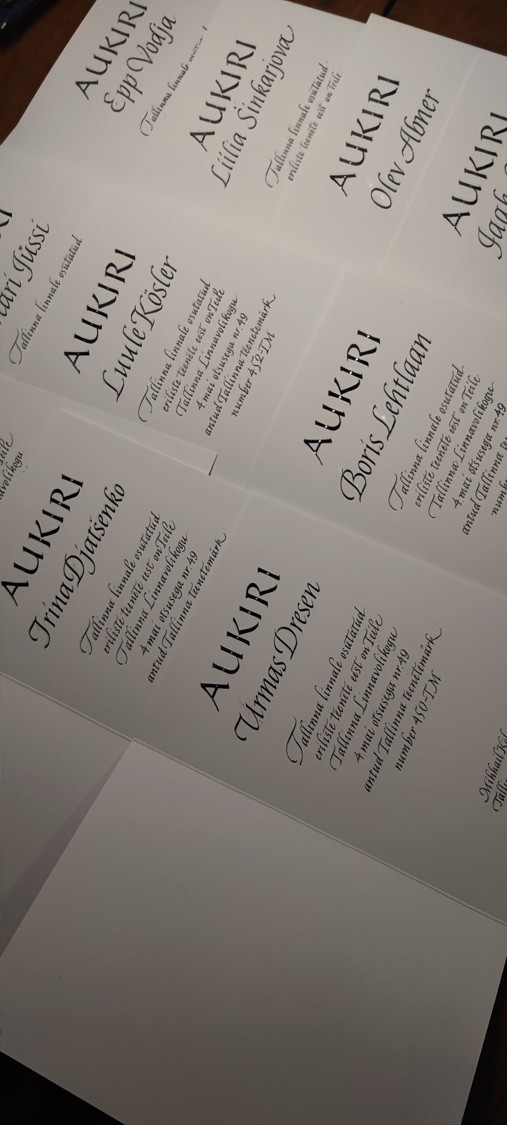 AUKIRI
Epp Vodja
Tallinna linnale
AUKIRI
Liilia Sinkarjova
Tallinna linnale osutatud
eriliste teenete eest on Teile
AUKIRI
Olev Abner
AUKIRI
Jüssi
Tallinna linnale osutatud
AUKIRI
Luule Kösler
Tallinna linnale osutatud
eriliste teenete eest on Teile
Tallinna Linnavolikogu
4 mai otsusega nr. 49
antud Tallinna teenetemärk
number 452-TM
AUKIRI
Boris Lehtlaan
Tallinna linnale osutatud
eriliste teenete eest on Teile
Tallinna Linnavolikogu
4 mai otsusega nr 49
antud Tallinna
AUKIRI
Irina Djatšenko
Tallinna linnale osutatud
eriliste teenete eest on Teile
Tallinna Linnavolikogu
4 mai otsusega nr 49
antud Tallinna teenetemärk
AUKIRI
Urmas Dresen
Tallinna linnale osutatud
eriliste teenete eest on Teile
Tallinna Linnavolikogu
4 mai otsusega nr 49
antud Tallinna teenetemärk
number 450-TM
Mihhail